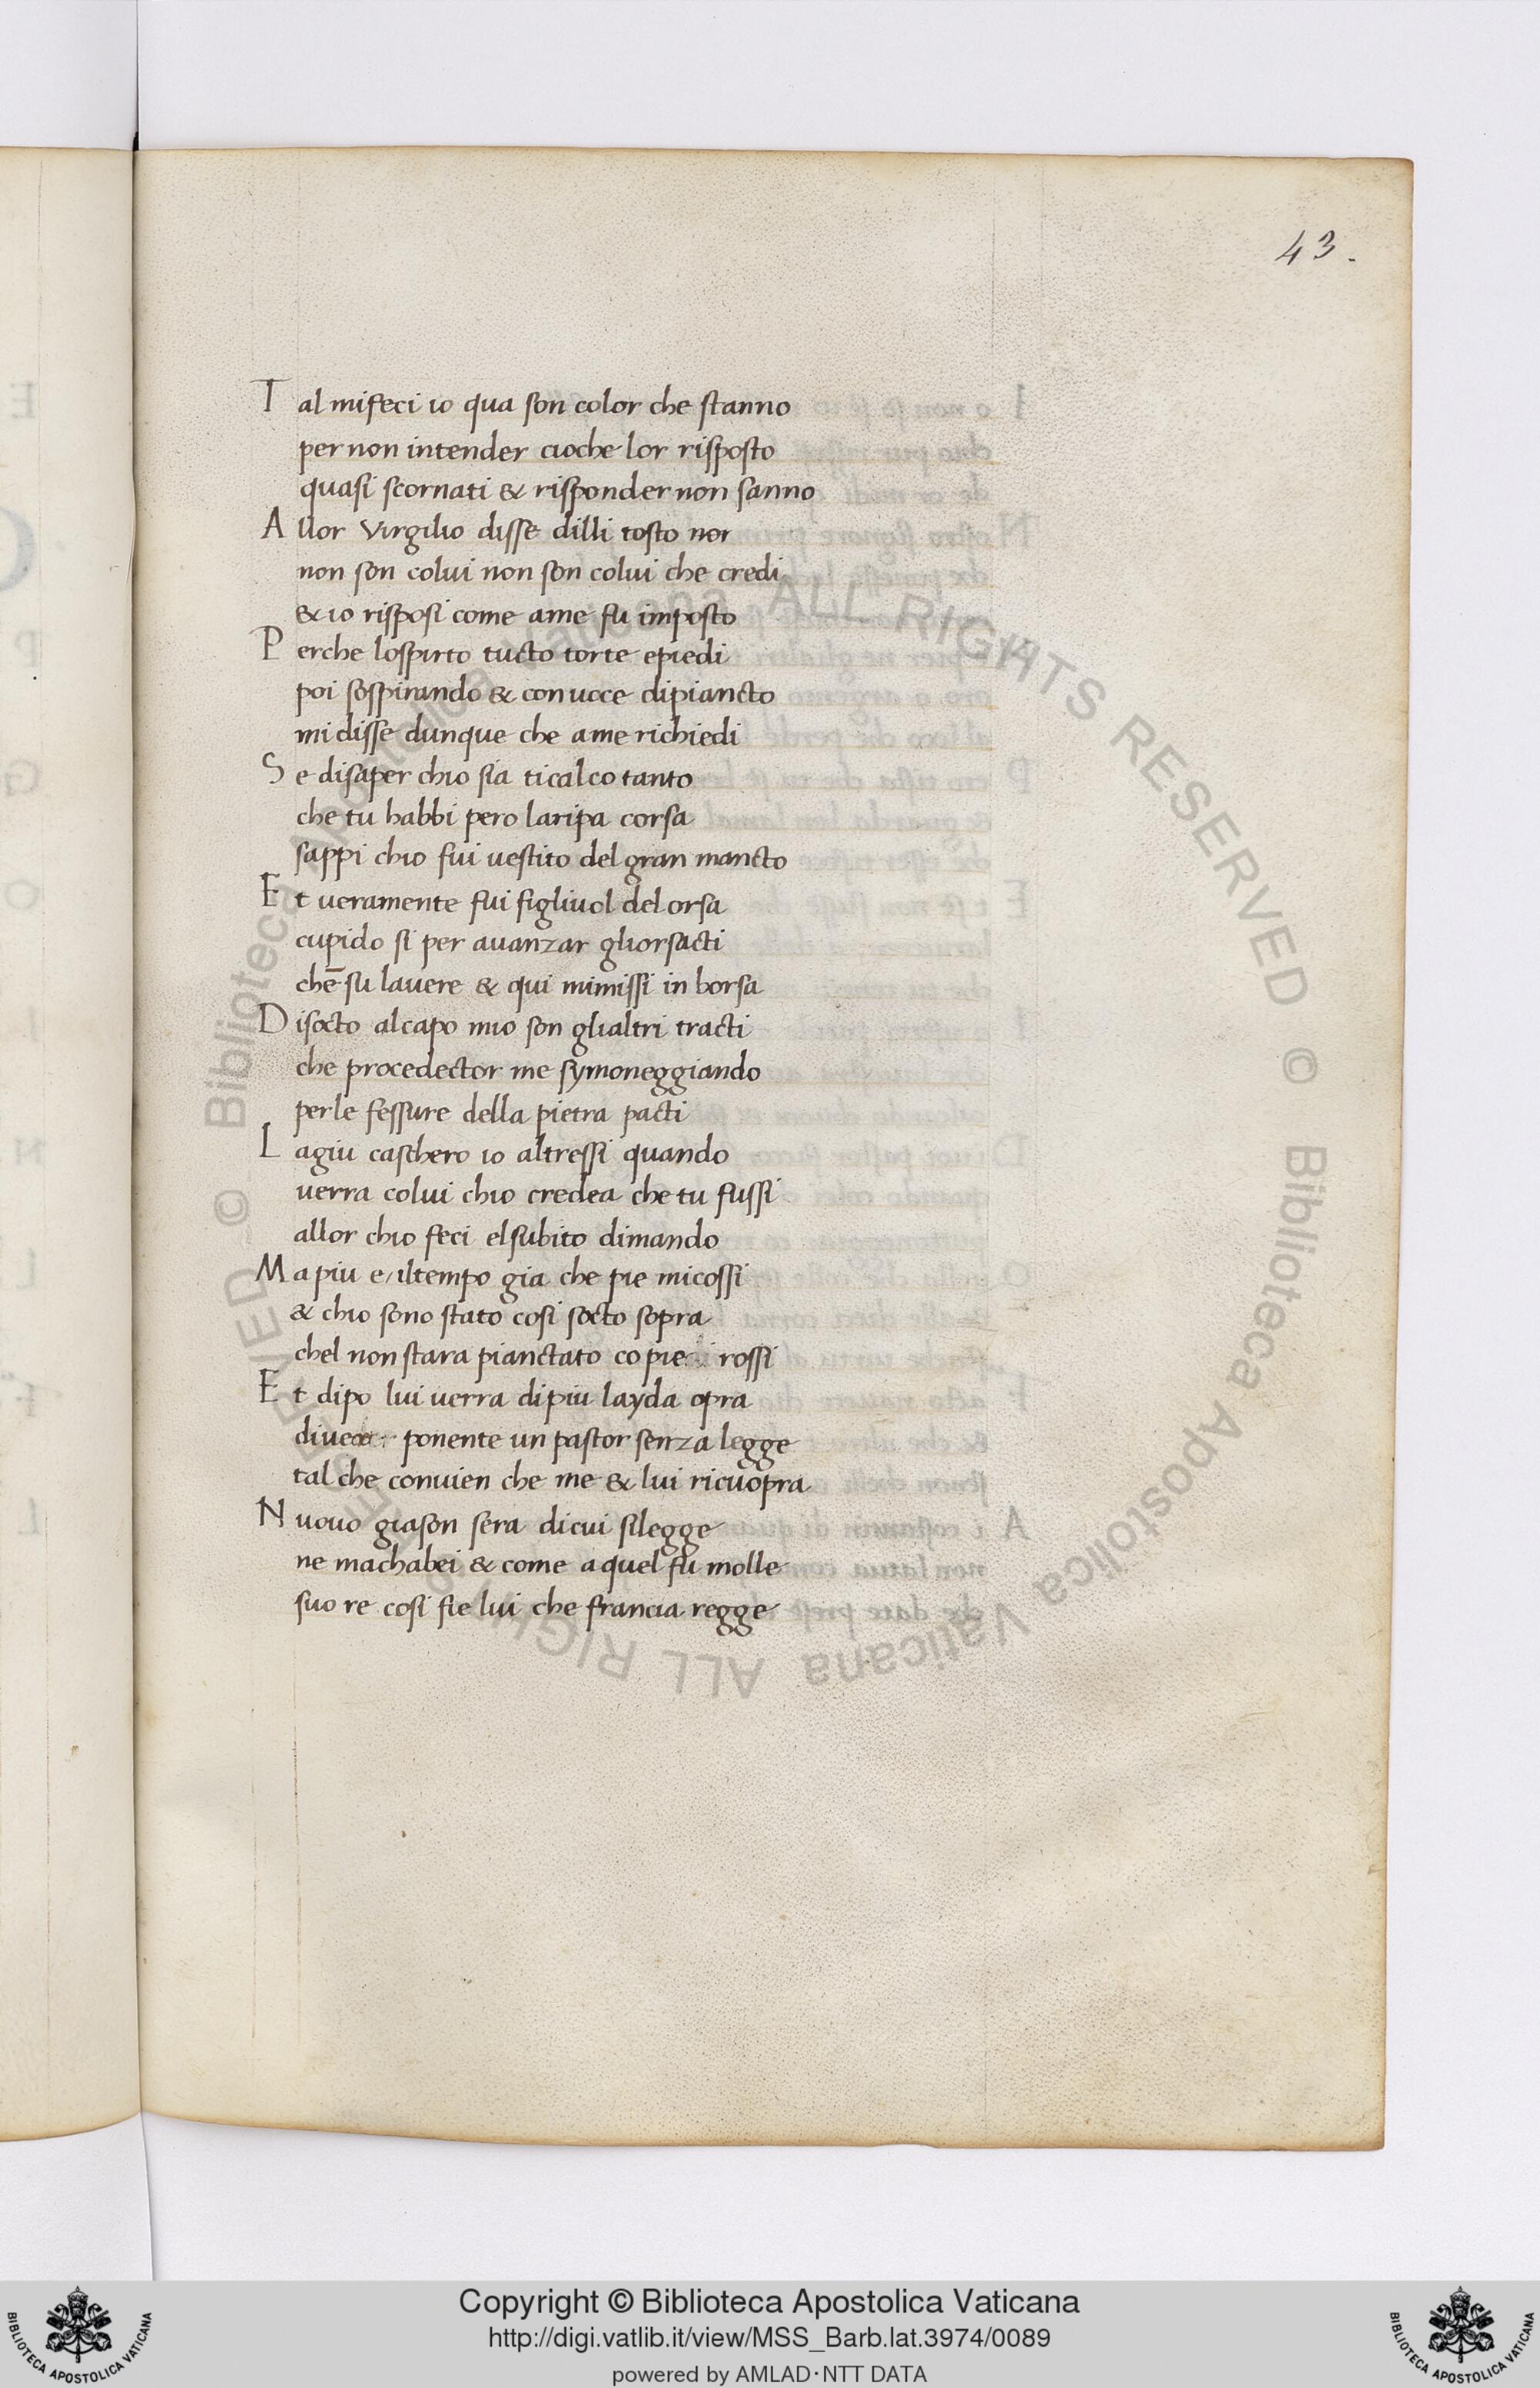 43.
Tal mifeci io qua son color che stanno
per non intender cioche lor risposto
quasi scornati & risponder non sanno
Allor Virgilio disse dilli tosto nor
non son colui non son colui che credi
& io risposi come ame fu imposto
Perche lospirto tucto torte epiedi
poi sospirando & con uoce dipiancto
mi disse dunque che ame richiedi
Se disaper chio sia ticalco tanto
che tu habbi pero laripa corsa
sappi chio fui uestito del gran mancto
Et ueramente fui figliuol del orsa
cupido si per auanzar gliorsacti
chē su lauere & qui mimissi in borsa
Disocto alcapo mio son glialtri tracti
che procedector me symoneggiando
perle fessure della pietra pacti
Lagiu caschero io altressi quando
uerra colui chio credea che tu fussi
allor chio feci elsubito dimando
Ma piu e iltempo gia che pie micossi
& chio sono stato cosi socto sopra
chel non stara pianctato co pie rossi
Et dipo lui uerra dipiu layda opra
diue ponente un pastor senza legge
tal che conuien che me & lui ricuopra
Nuouo giason sera dicui silegge
ne machabei & come aquel fu molle
suo re cosi fie lui che francia regge
© Biblioteca Apostolica Vaticana ALL RIGHTS RESERVED © Biblioteca Apostolica Vaticana ALL RIGHTS RESERVED
BIBLIOTECA APOSTOLICA VATICANA
Copyright © Biblioteca Apostolica Vaticana
http://digi.vatlib.it/view/MSS_Barb.lat.3974/0089
powered by AMLAD·NTT DATA
BIBLIOTECA APOSTOLICA VATICANA